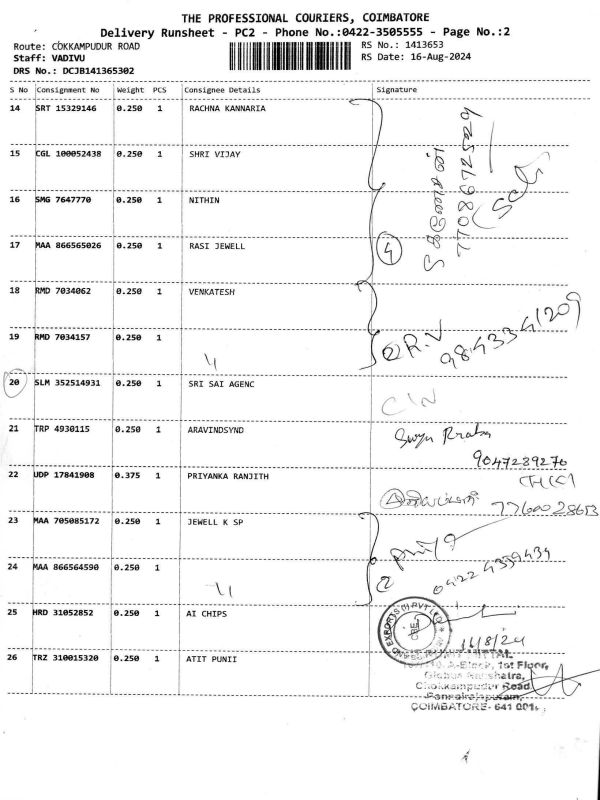 THE PROFESSIONAL COURIERS, COIMBATORE
Delivery Runsheet - PC2 - Phone No.:0422-3505555 - Page No.:2
Route: COKKAMPUDUR ROAD
RS No.: 1413653
Staff: VADIVU
RS Date: 16-Aug-2024
DRS No.: DCJB141365302
S No Consignment No Weight PCS Consignee Details Signature
14 SRT 15329146 0.250 1 RACHNA KANNARIA
15 CGL 100052438 0.250 1 SHRI VIJAY
16 SMG 7647770 0.250 1 NITHIN
17 MAA 866565026 0.250 1 RASI JEWELL
4
7708672529
18 RMD 7034062 0.250 1 VENKATESH
19 RMD 7034157 0.250 1 〃
② R.V
9843341209
20 SLM 352514931 0.250 1 SRI SAI AGENC
C/N
21 TRP 4930115 0.250 1 ARAVINDSYND
9047289270
22 UDP 17841908 0.375 1 PRIYANKA RANJITH
23 MAA 705085172 0.250 1 JEWELL K SP
24 MAA 866564590 0.250 1 〃
② Priya
0422 4339434
25 HRD 31052852 0.250 1 AI CHIPS
16/8/24
26 TRZ 310015320 0.250 1 ATIT PUNII
A-Block, 1st Floor,
Chokkampudur Road
COIMBATORE- 641 001.